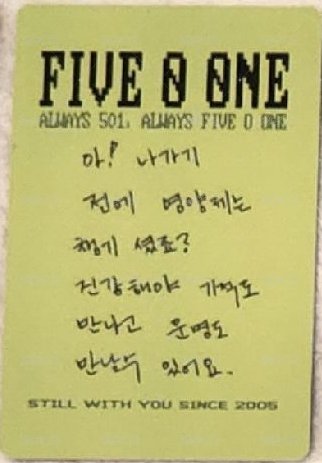 FIVE 0 ONE
ALWAYS 501, ALWAYS FIVE 0 ONE
아! 나가기
전에 영양제는
챙기셨죠?
건강해야 기적도
만나고 운명도
만날수 있어요.
STILL WITH YOU SINCE 2005